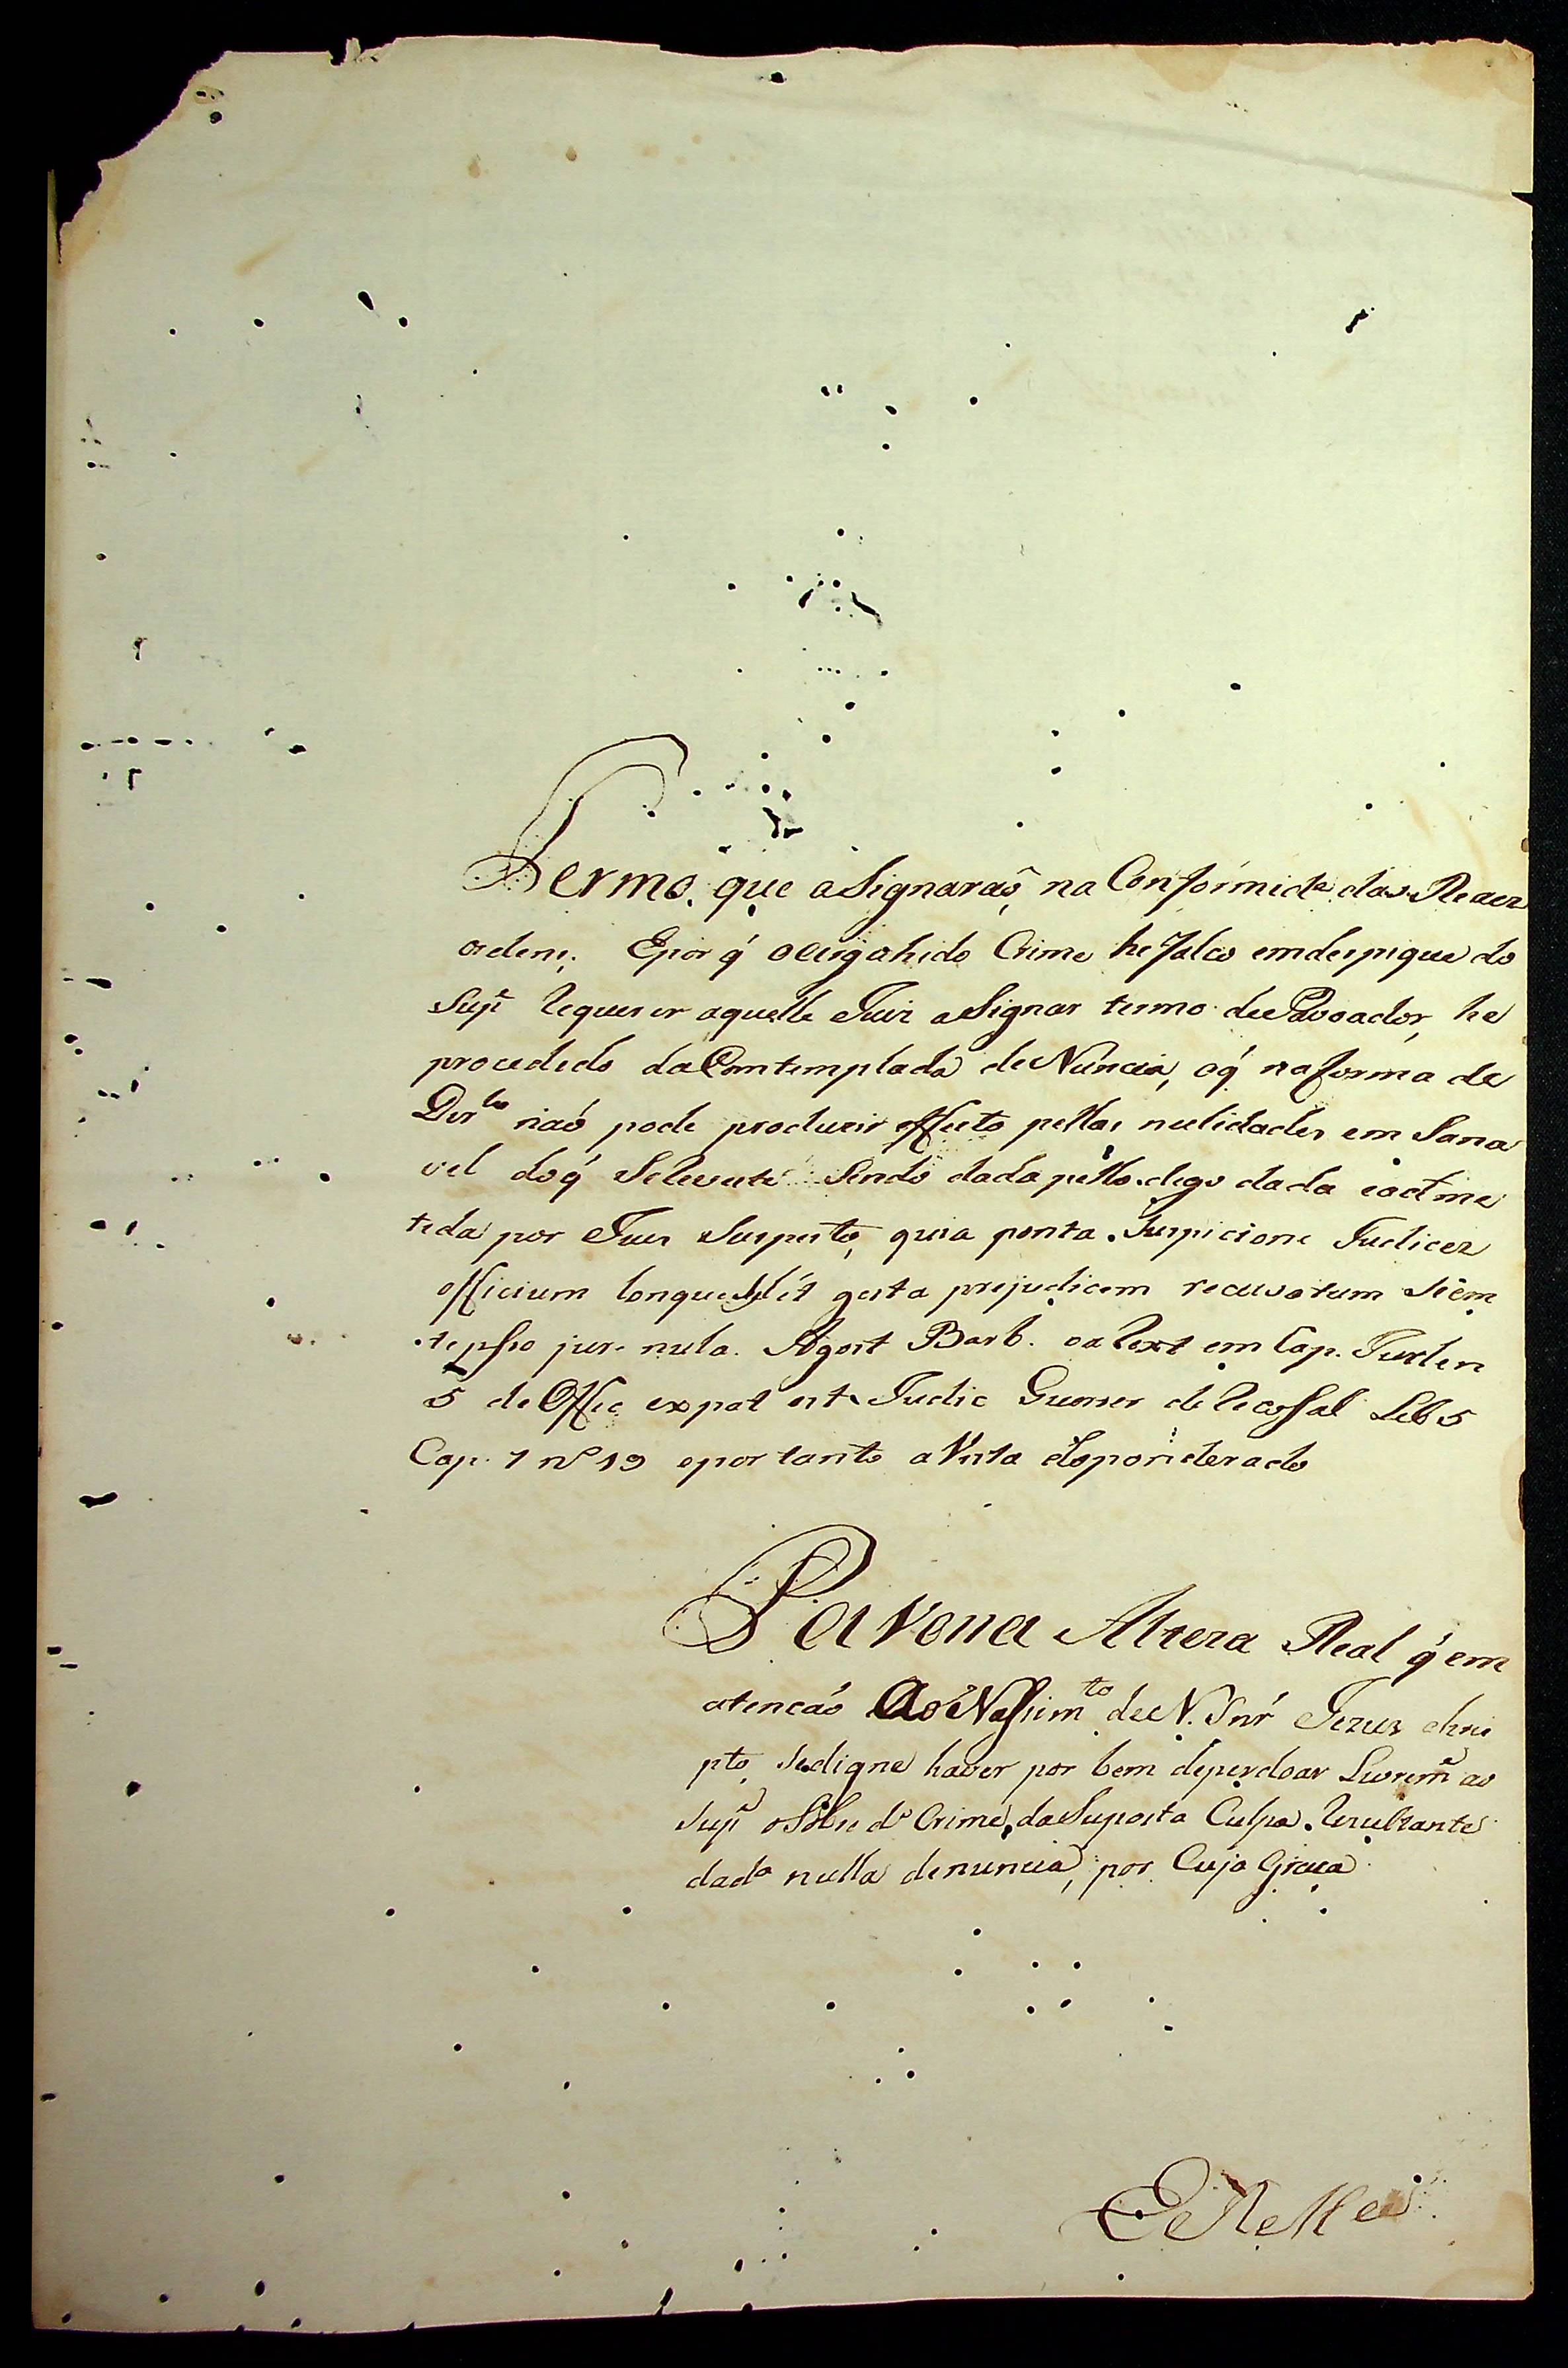 Termo, que aSignaraõ, na Conformide. das Reaes
ordens; Epor q' o Crime he falço emdespique do
Supe. Requerer aquelle Juiz aSignar termo de Povoador, he
procedido da Comtemplada deNuncia, oq' naforma de
Dirto. naõ pode produzir effeito pellas nulidades em Sana
vel doq' Sendo dada pello digo dada eadme
teda por Juis Suspeito, quia ponta. Suspicione Judices
officium gesta prejudicem recusatum
ipso jure nula. Agost Barb. oa text em Cap.
5 de Offic expot Judic Lib 5
Cap. 7 nº 19 eportanto aVista doponderado
P a Vossa Alteza Real q' em
atencaõ Ao Nassimto. de N. Snr' Jezus chris
pto, sedigne haver por bem deperdoar Livreme. ao
Supe. dº Crime, daSuposta Culpa. Rezultante
dada nulla denuncia, por Cuja Graca
E R Mce